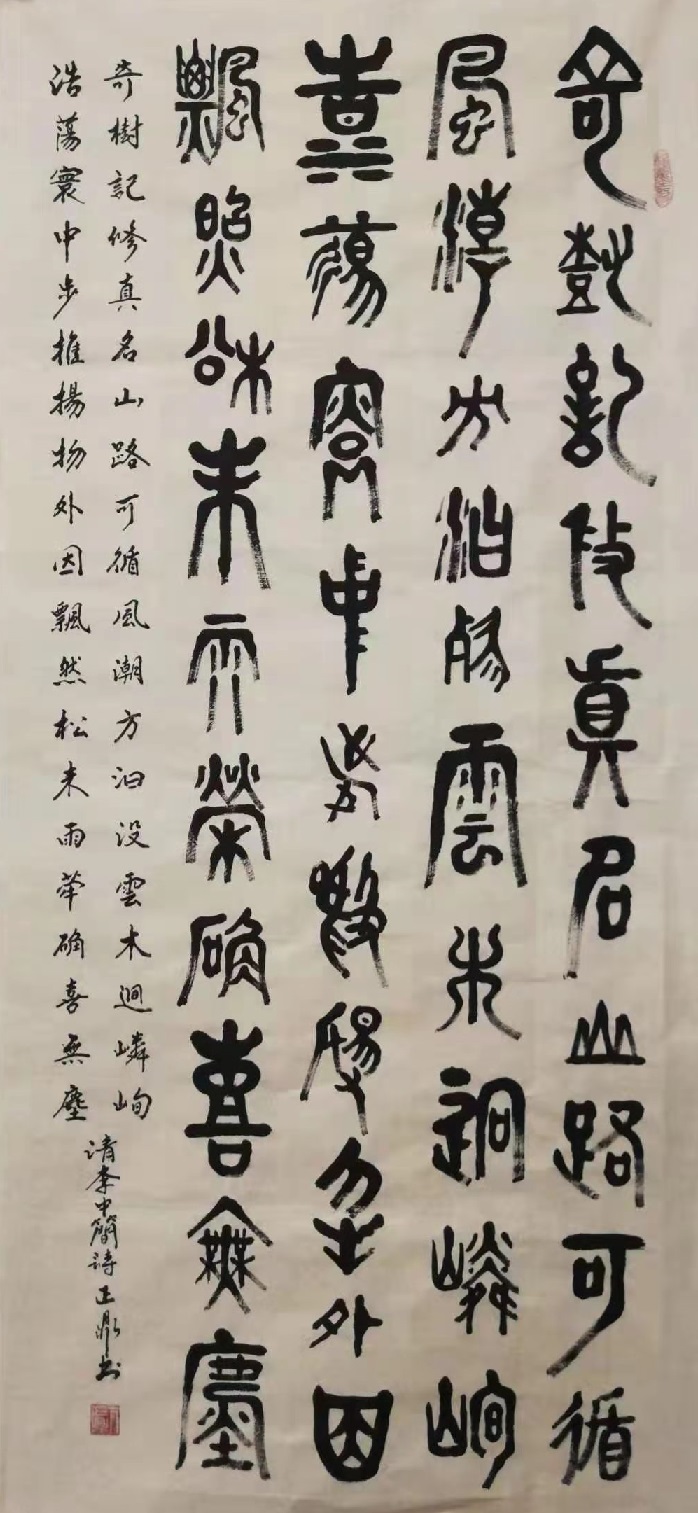 奇樹記修真名山路可循
風潮方泊沒雲木迥嶙峋
浩蕩寰中步推揚物外因
飄然松未雨華確喜無塵
奇樹記修真名山路可循風潮方泊没雲木迥嶙峋
浩蕩寰中步推揚物外因飄然松未雨華确喜無塵
清李中簡詩正鼎书